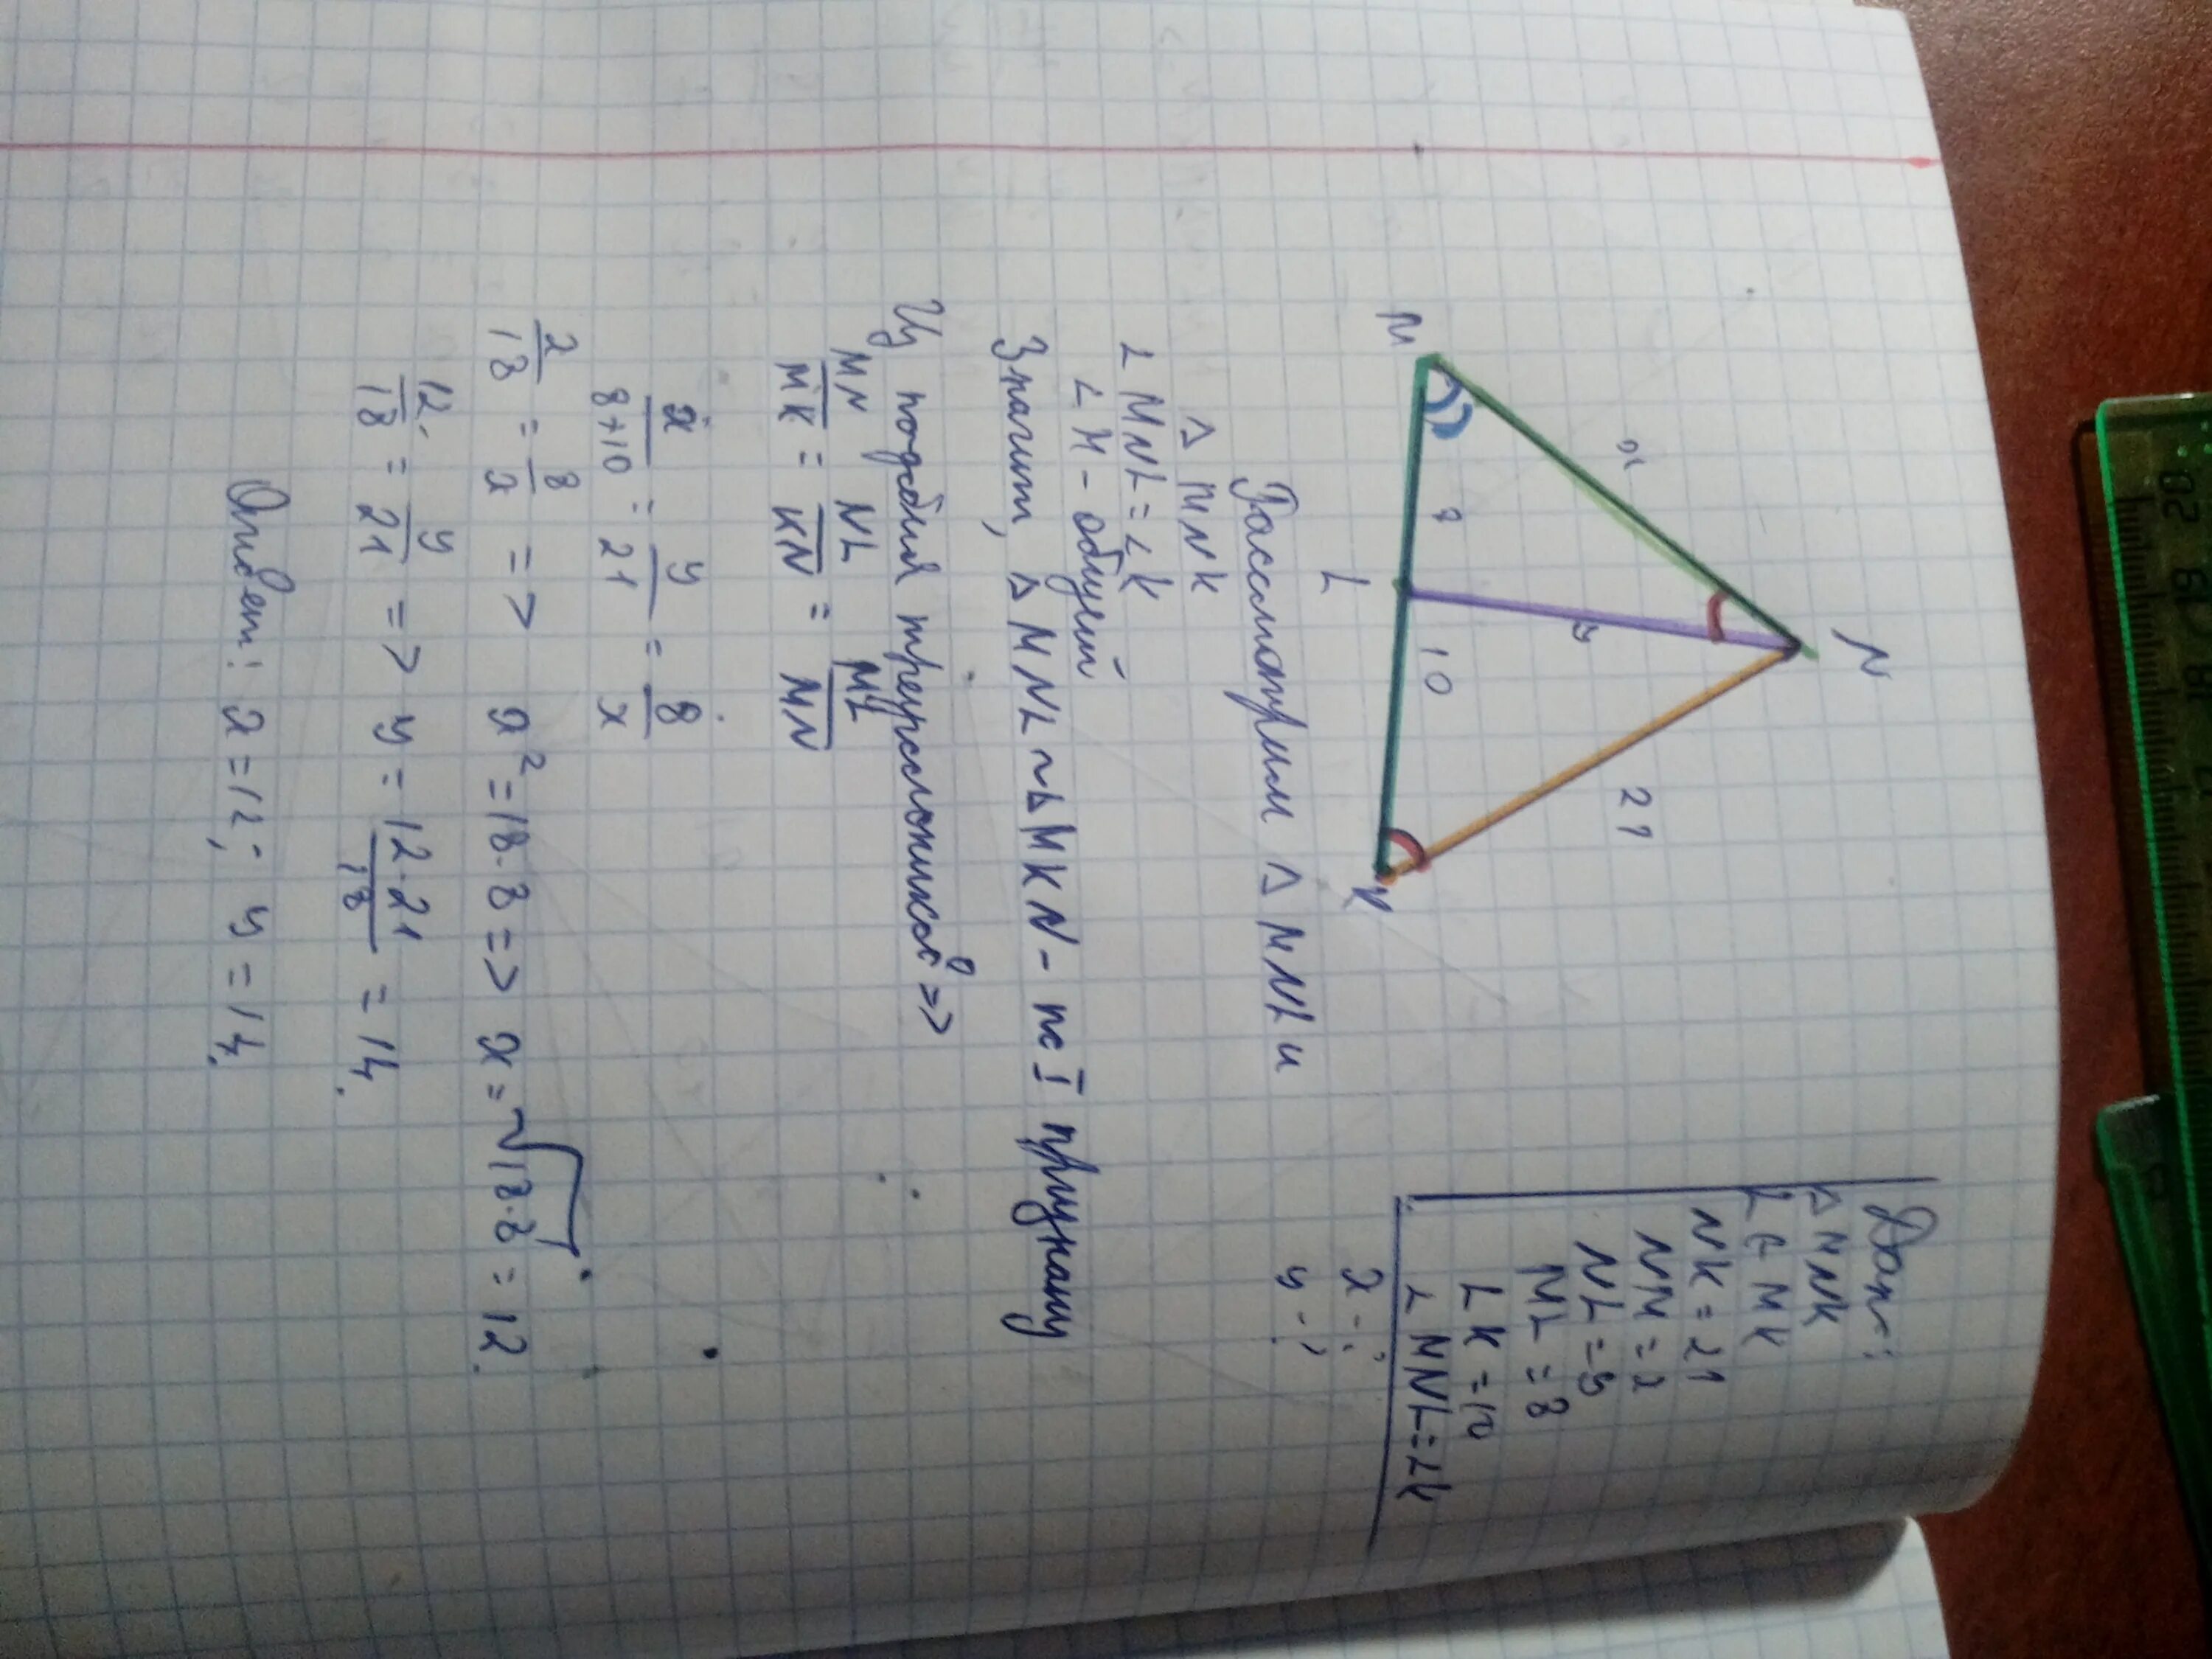 Дано:
△ MNK
L ∈ MK
NK = 21
NM = x
NL = y
ML = 8
LK = 10
∠ MNL = ∠K
x - ?
y - ?
N
x
21
y
M
8
10
K
L
Рассмотрим △ MNL и
△ MNK
∠ MNL = ∠K
∠ M - общий
Значит, △ MNL ~ △ MKN - по I признаку
Из подобия треугольников =>
MN/MK = NL/KN = ML/MN
x/8+10 = y/21 = 8/x
x/18 = 8/x => x² = 18·8 => x = √18·8 = 12.
12/18 = y/21 => y = 12·21/18 = 14.
Ответ: x = 12; y = 14.
20 19 18